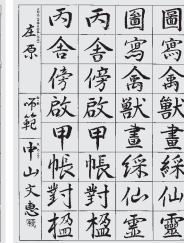 圖寫禽獸畫綵仙靈
圖寫禽獸畫綵仙靈
丙舍傍啟甲帳對楹
丙舍傍啟甲帳對楹
庄原
師範中山文惠